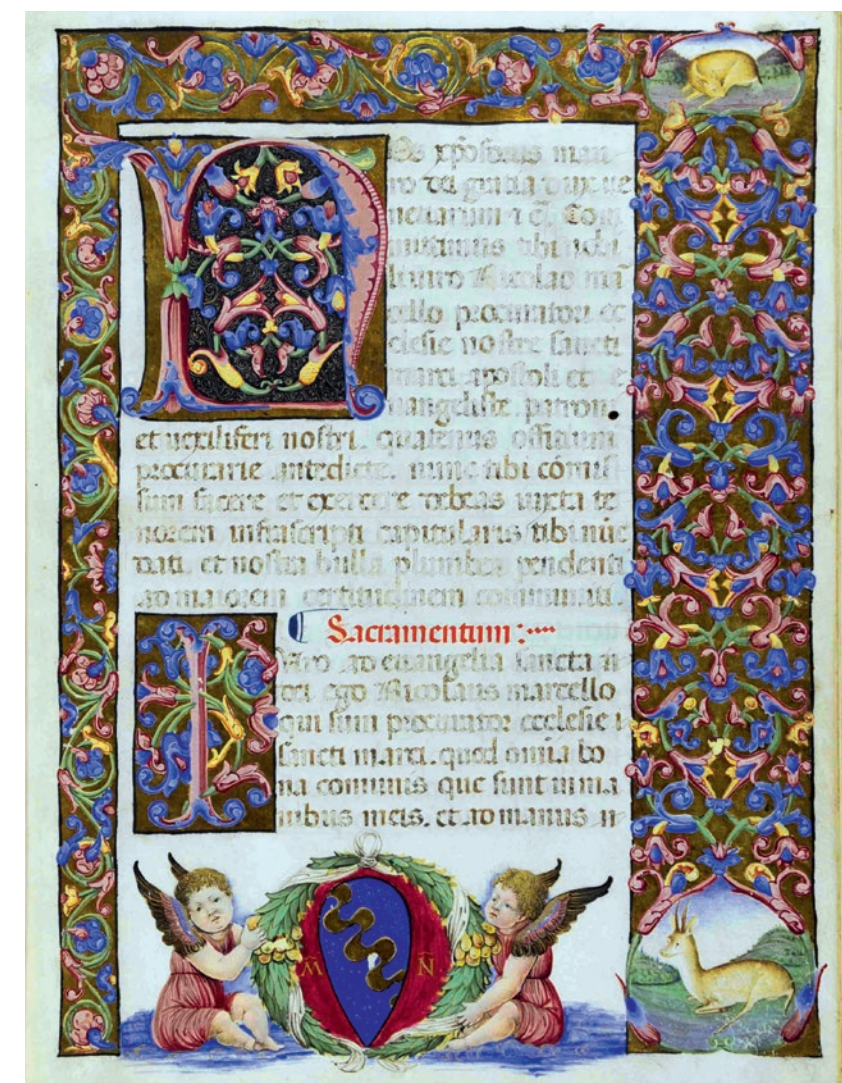 Nos xp̄oforus mau
ro dei gratia dux ue
netiarum ⁊ c̄. Com
mittimus tibi nobi
li uiro Nicolao mar̄
cello procuratori ec
clesie nostre sancti
marci apostoli et e
uangeliste patroni
et uexiliferi nostri. quatenus offitium
procuratie antedicte. nunc tibi cōmis
sum facere et exercere debeas iuxta te
norem infrascripti capitularis tibi nūc
dati. et nostra bulla plumbea pendenti
ad maiorem certitudinem communiti.
Sacramentum :
Iuro ad euangelia sancta
dei ego Nicolaus marcello
qui sum procurator ecclesie
sancti marci. quod omīa bo
na comunis que sunt in ma
nibus meis. et ad manus
M̄ N̄